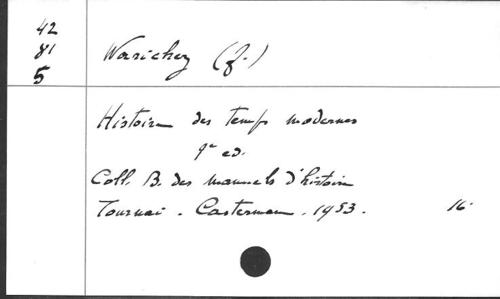 42
81
5
Warichez (J.)
Histoire des temps modernes
9e ed.
Coll. B. des manuels d'histoire
Tournai. Casterman. 1953. 16